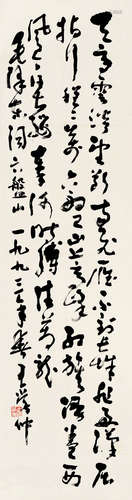 天高雲淡望斷南飛雁不到長城非好漢屈
指行程二萬六盤山上高峰紅旗漫卷西
風今日長纓在手何時縛住蒼龍
毛澤東詞六盤山一九九三年春王學仲